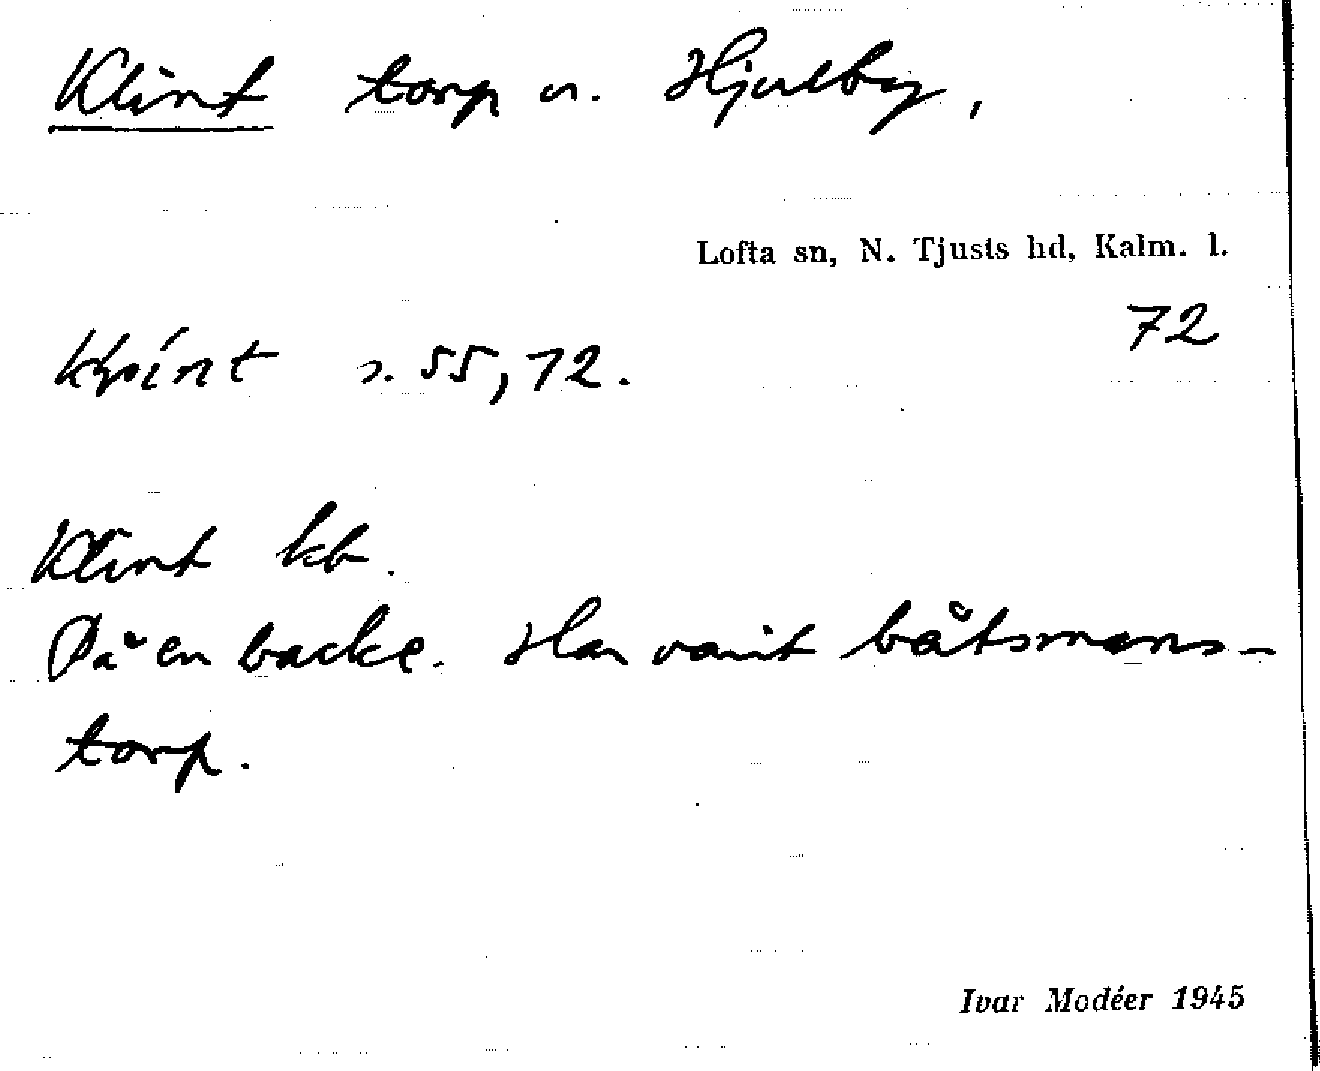 Klint torp u. Hjulby,
Lofta sn, N. Tjusts hd, Kalm. l.
72
s. 55, 72.
Klint kb.
På en backe. Har varit båtsmans-
torp.
Ivar Modéer 1945